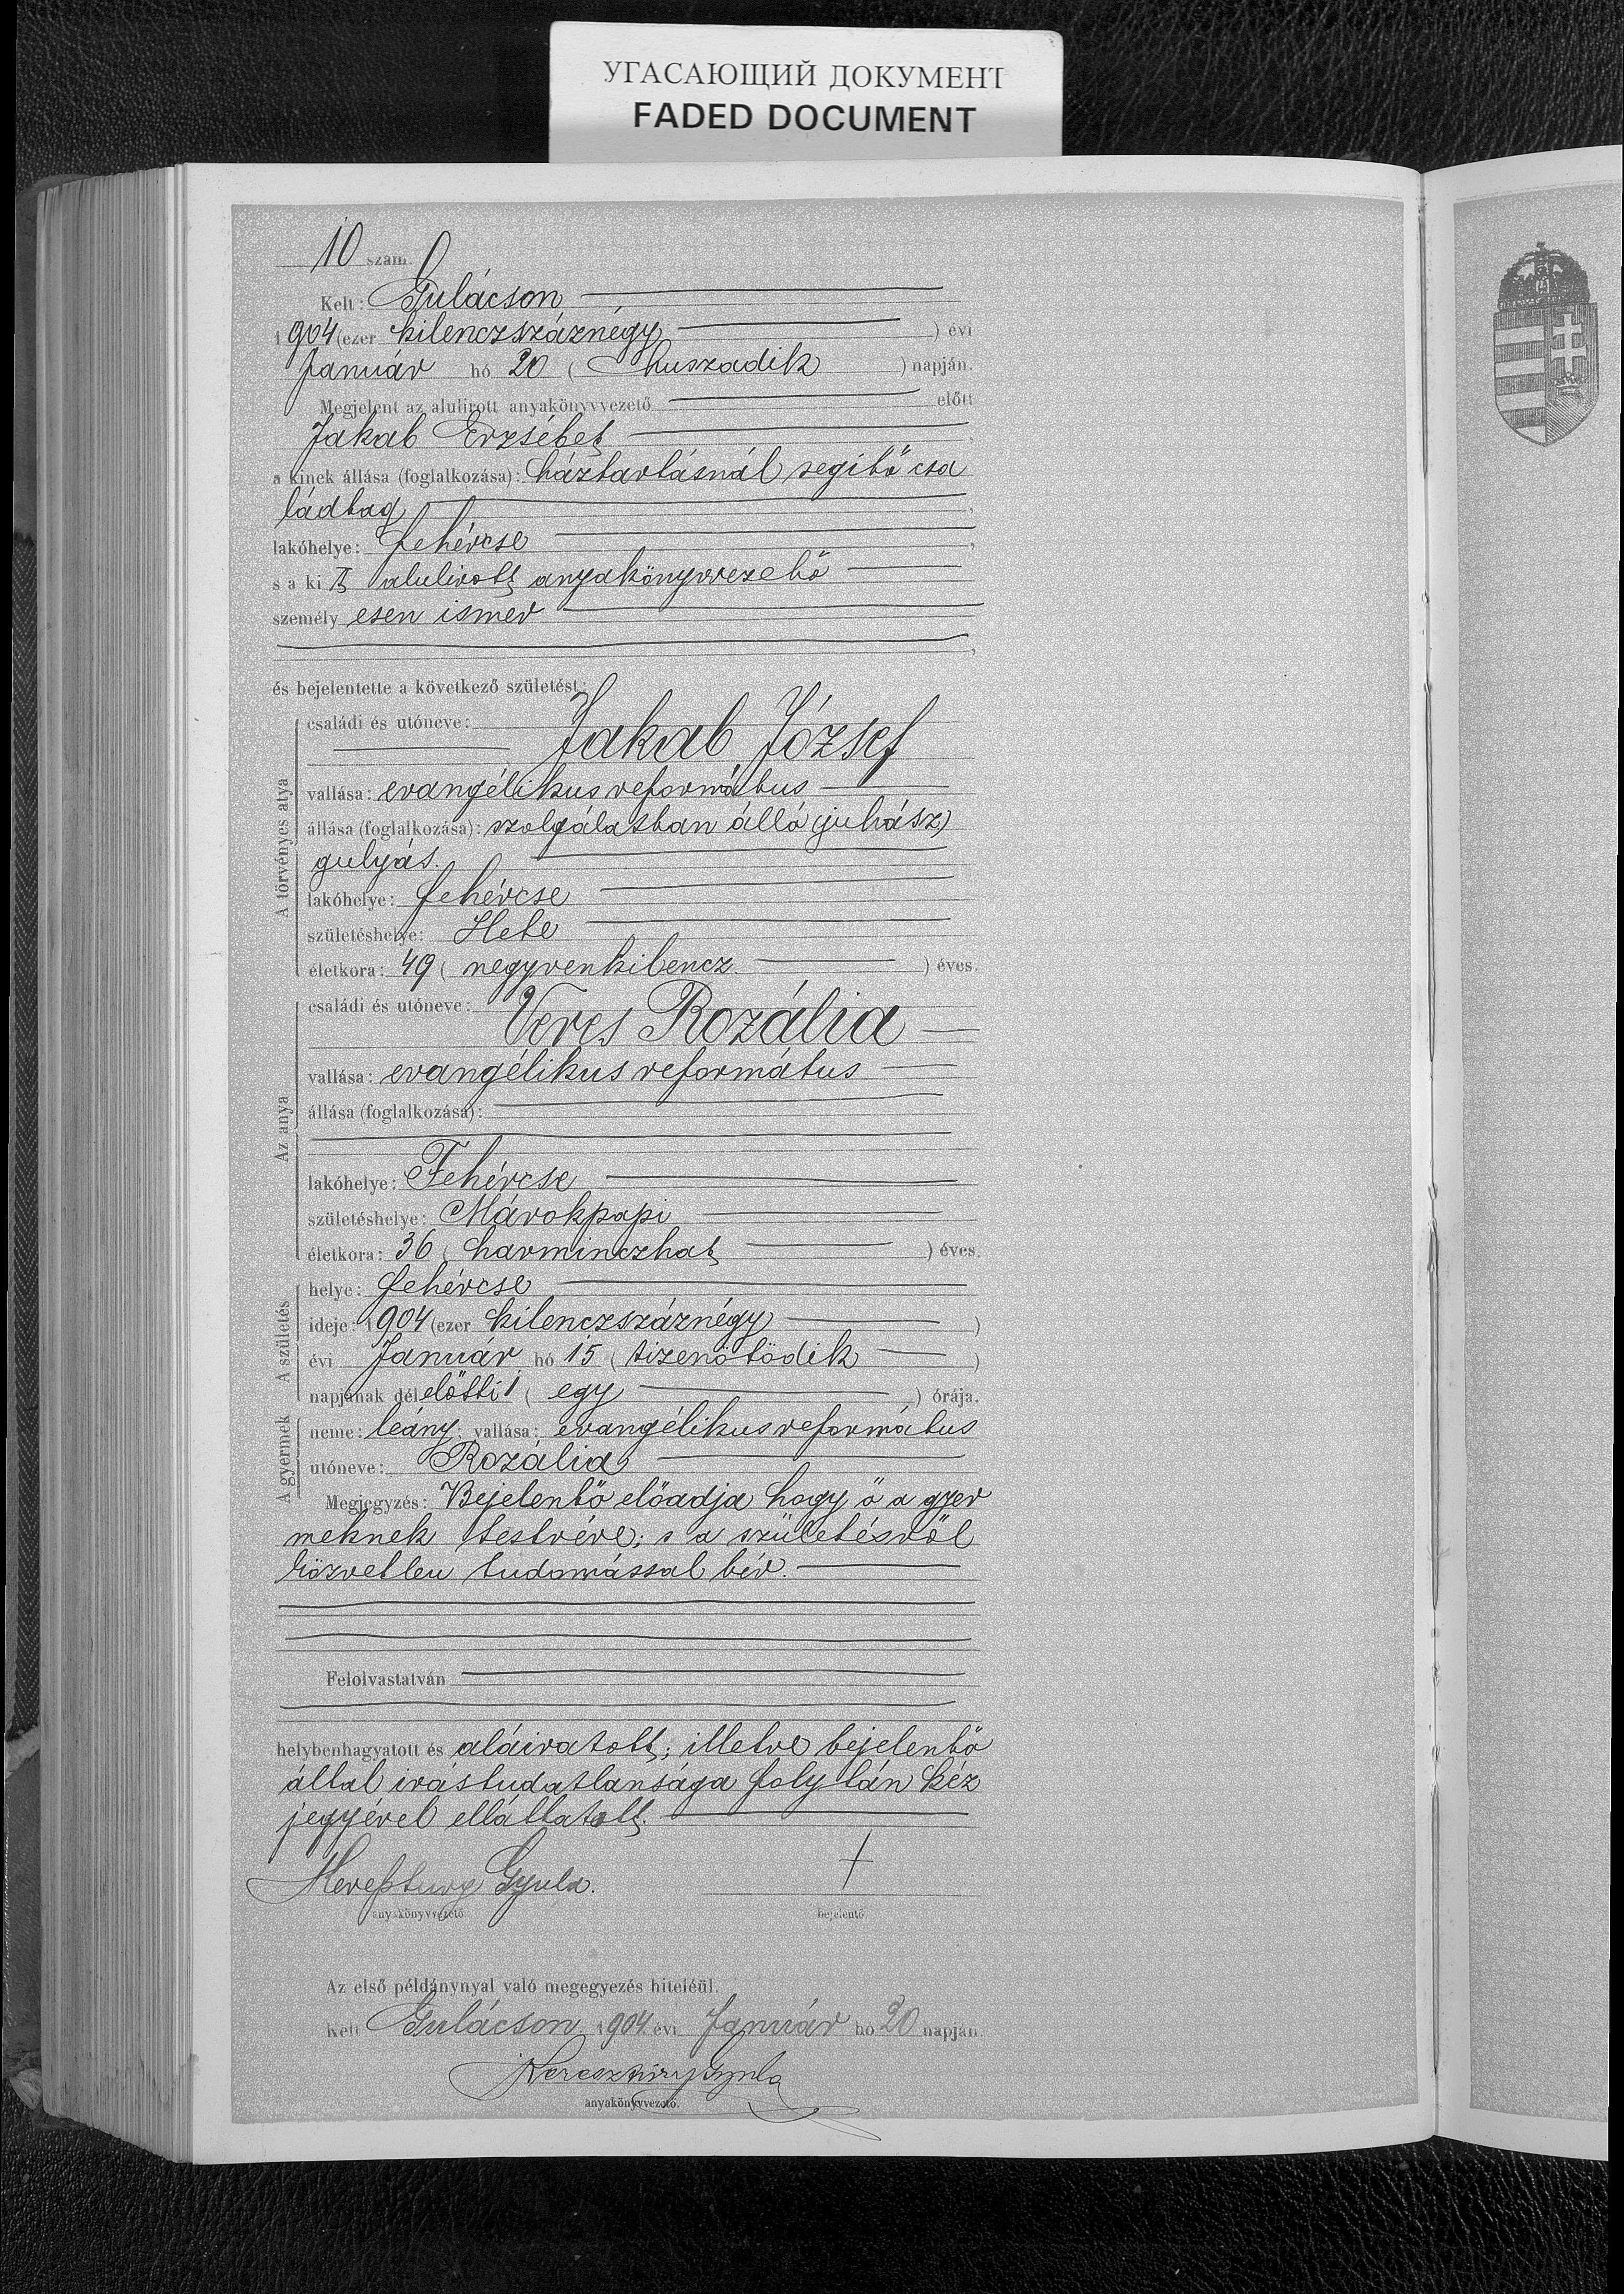 УГАСАЮЩИЙ ДОКУМЕНТ
FADED DOCUMENT
10 szám.
Kelt: Gulácson
1904 (ezer kilenczszáznégy ) évi
Január hó 20 ( huszadik ) napján.
Megjelent az alulirott anyakönyvvezető előtt
Jakab Erzsébet
a kinek állása (foglalkozása): háztartásnál segítő csa
ládtag
lakóhelye: Fehércse
s a ki t alulirott anyakönyvvezető
személy esen ismer
és bejelentette a következő születést:
A törvényes atya
családi és utóneve:
Jakab József
vallása: evangélikus református
állása (foglalkozása): szolgálatban álló (juhász)
gulyás.
lakóhelye: Fehércse
születéshelye: Hete
életkora: 49 ( negyvenkilencz ) éves.
Az anya
családi és utóneve:
Veres Rozália
vallása: evangélikus református
állása (foglalkozása):
lakóhelye: Fehércse
születéshelye: Márokpapi
életkora: 36 ( harminczhat ) éves.
A születés
helye: Fehércse
ideje: 1904 (ezer kilenczszáznégy )
évi Január hó 15 ( tizenötödik )
napjának dél előtti 1 ( egy ) órája.
A gyermek
neme: leány; vallása: evangélikus református
utóneve: Rozália
Megjegyzés: Bejelentő előadja hogy ő a gyer
meknek testvére; s a születésről
közvetlen tudomással bír.
Felolvastatván
helybenhagyatott és aláiratott; illetve bejelentő
által irástudatlansága folytán kéz
jegyével elláttatott.
Gyula. +
anyakönyvvezető bejelentő.
Az első példánynyal való megegyezés hiteléül.
Kelt Gulácson 1904. évi Január hó 20 napján.
Gyula
anyakönyvvezető.